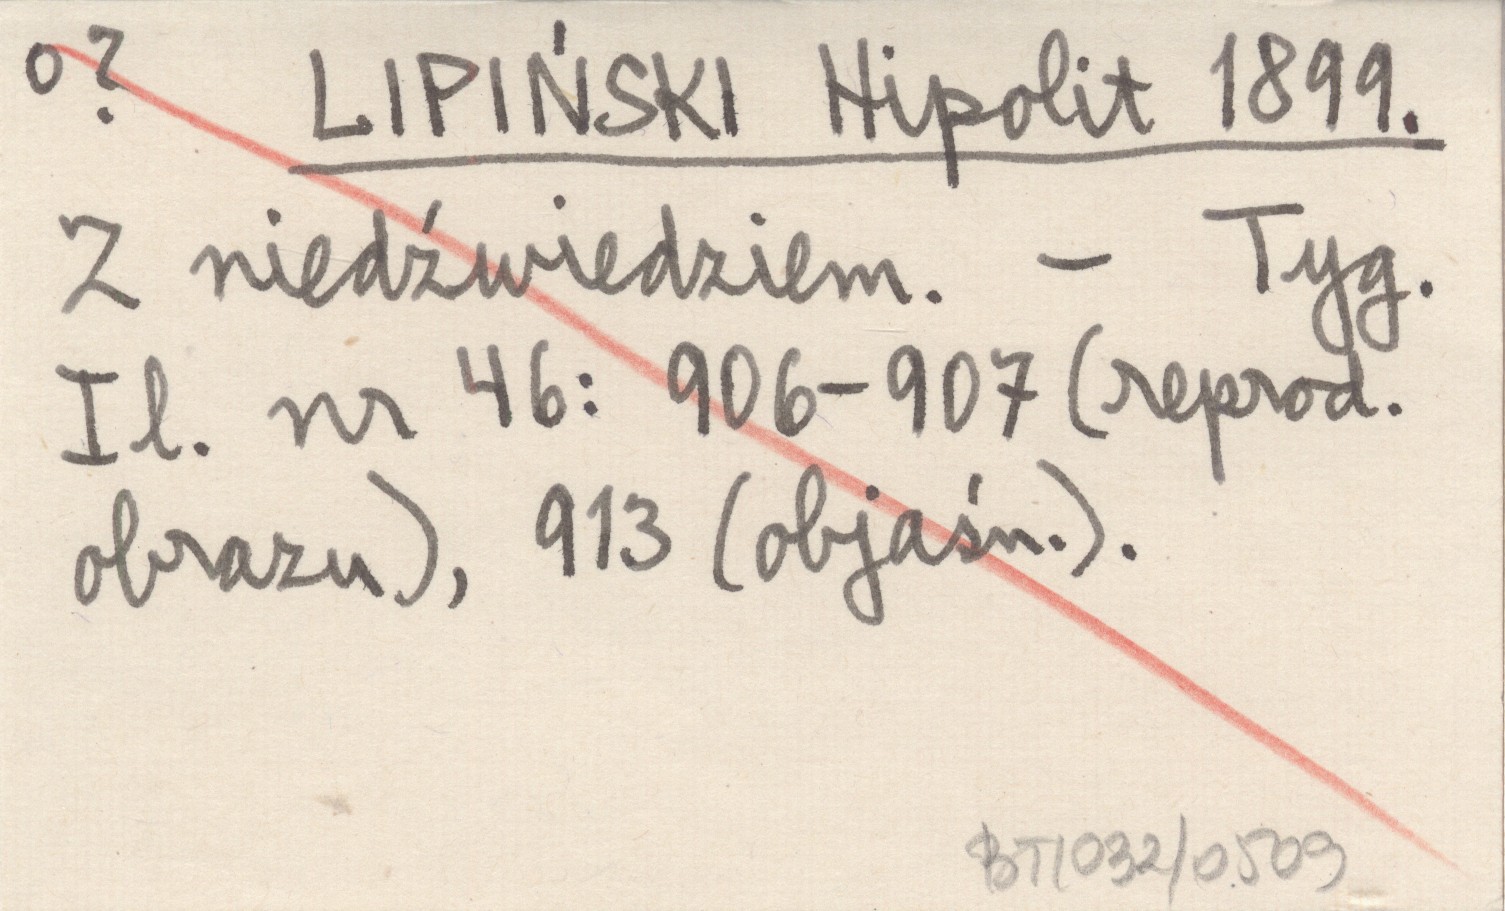 o? LIPIŃSKI Hipolit 1899.
Z niedźwiedziem. – Tyg.
Il. nr 46: 906–907 (reprod.
obrazu), 913 (objaśn.).
BT1032/0509